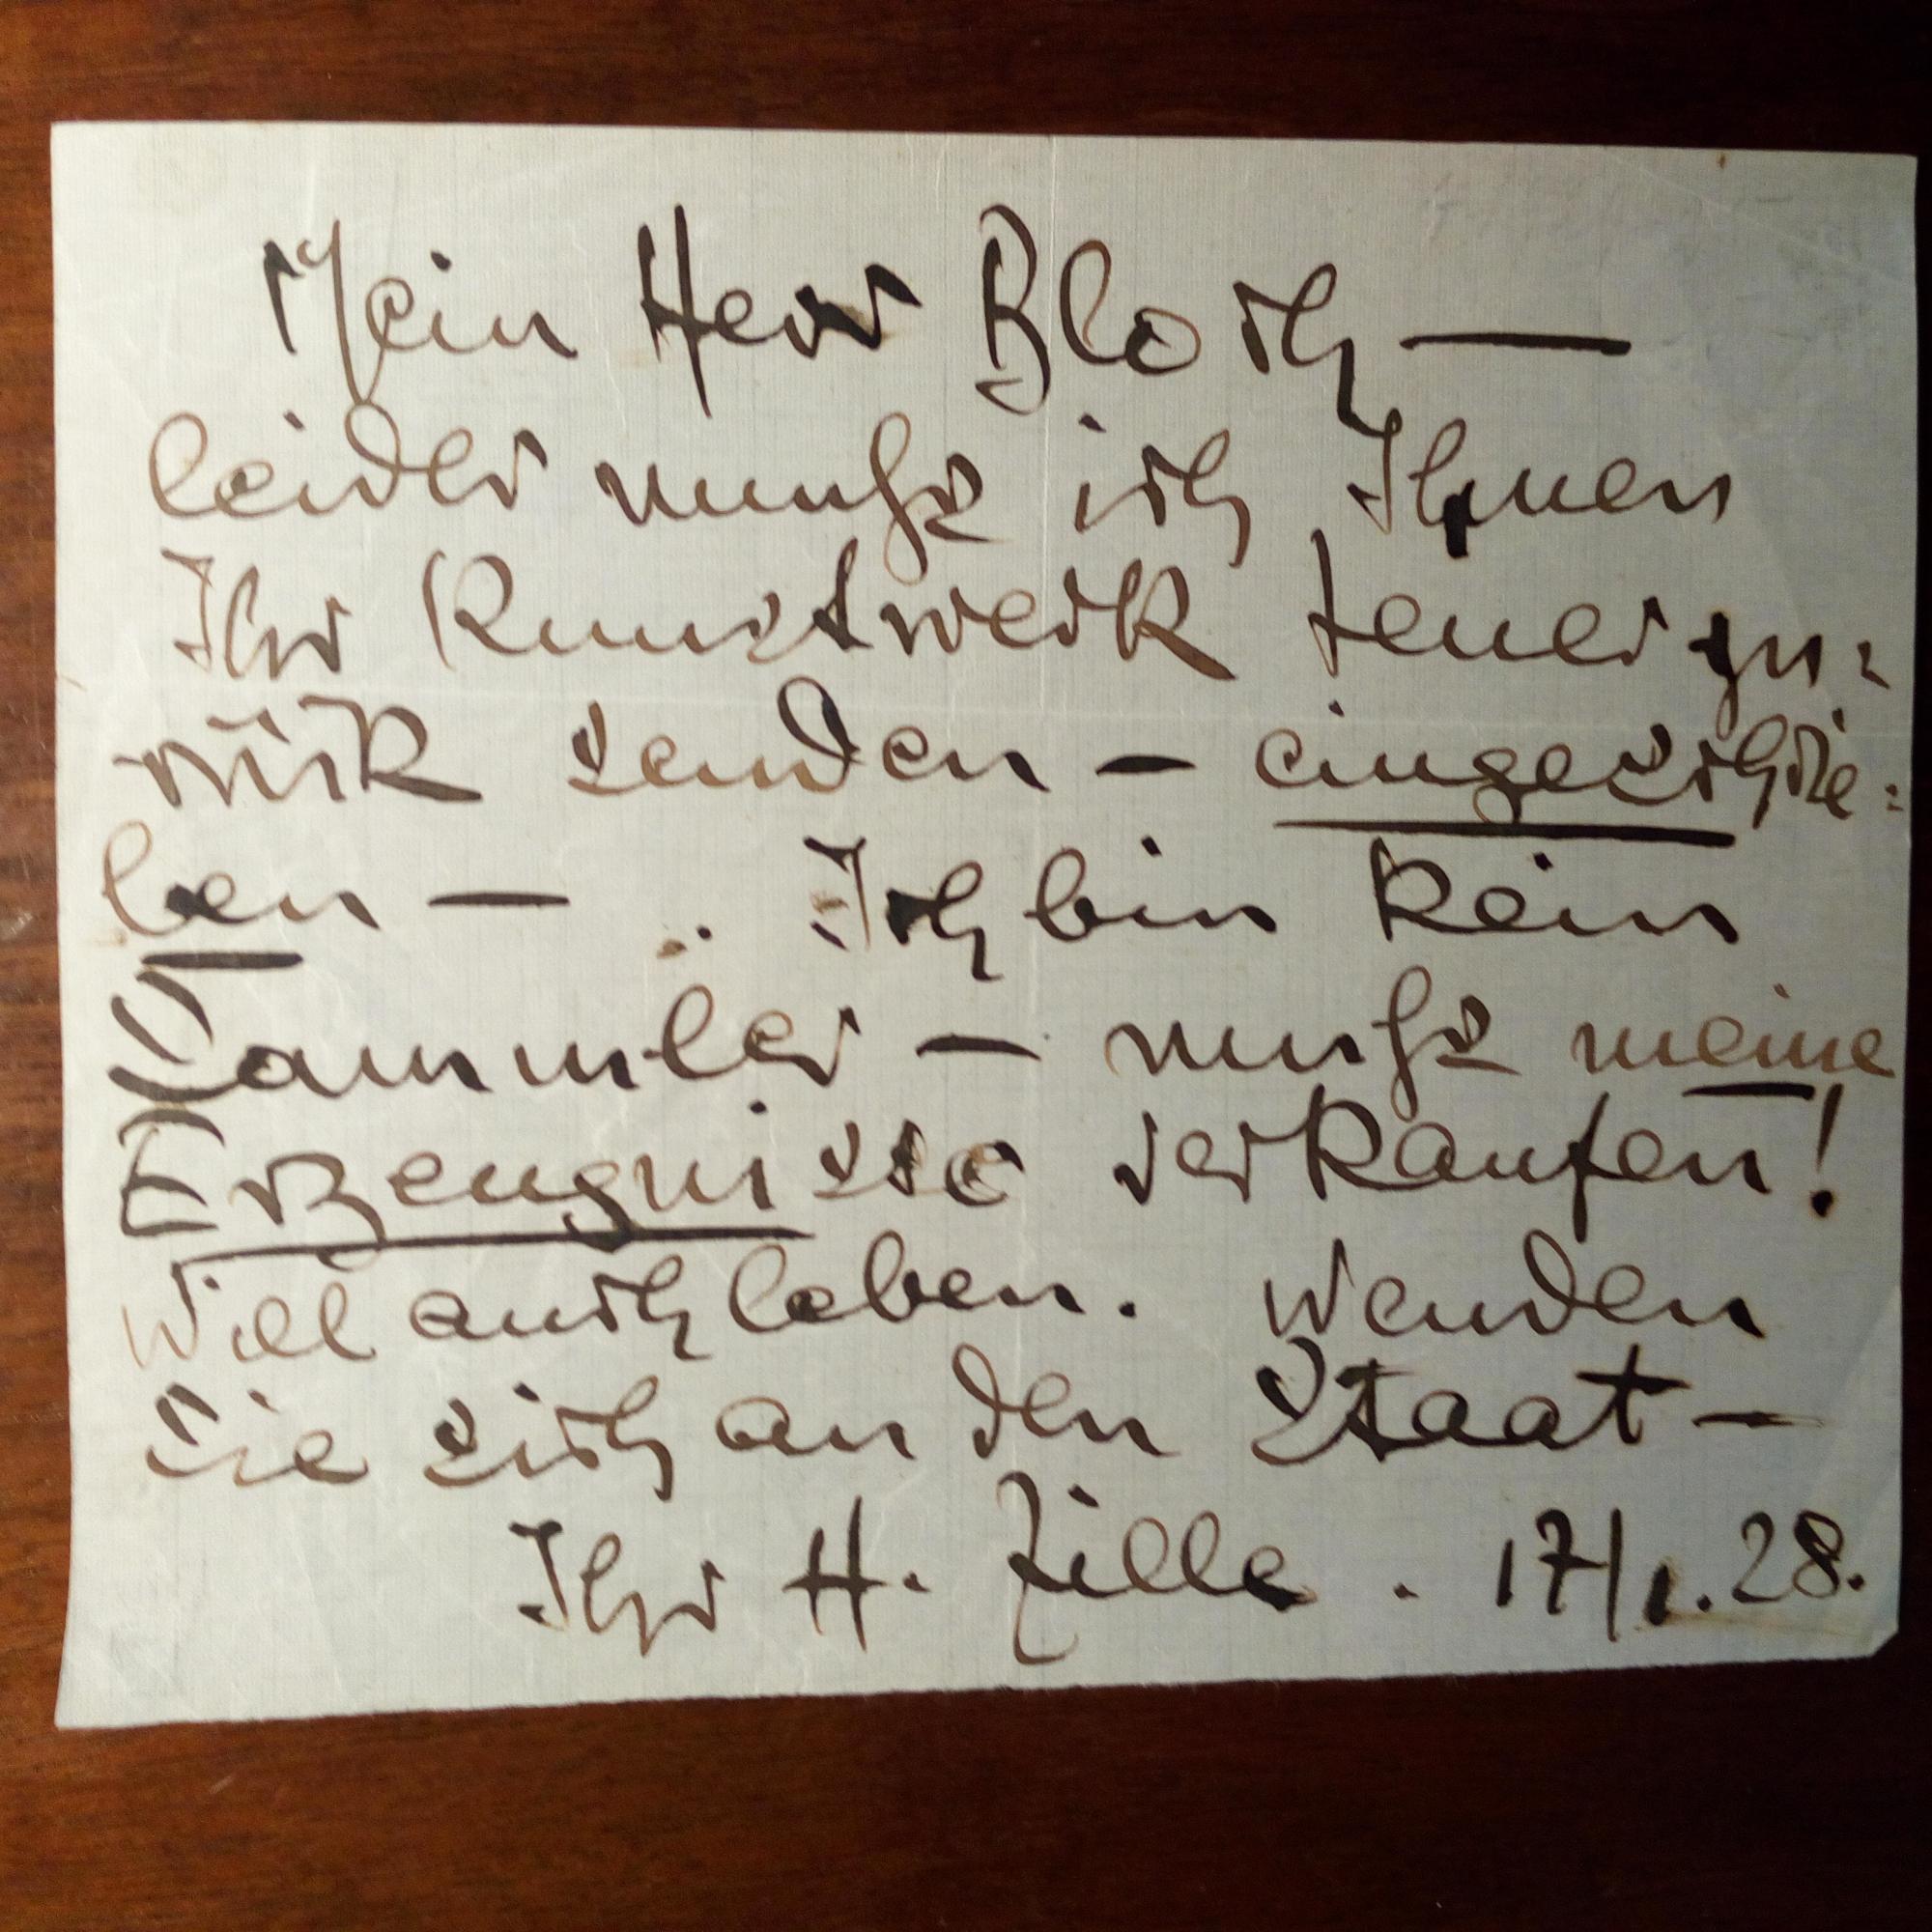 Mein Herr Bloch —
leider muß ich Ihnen
Ihr Kunstwerk teuer zu=
rück senden — eingeschrie=
ben — Ich bin kein
Sammler — muß meine
Erzeugnisse verkaufen!
Will auch leben. Wenden
Sie sich an den Staat —
Ihr H. Zille. 17/1.28.